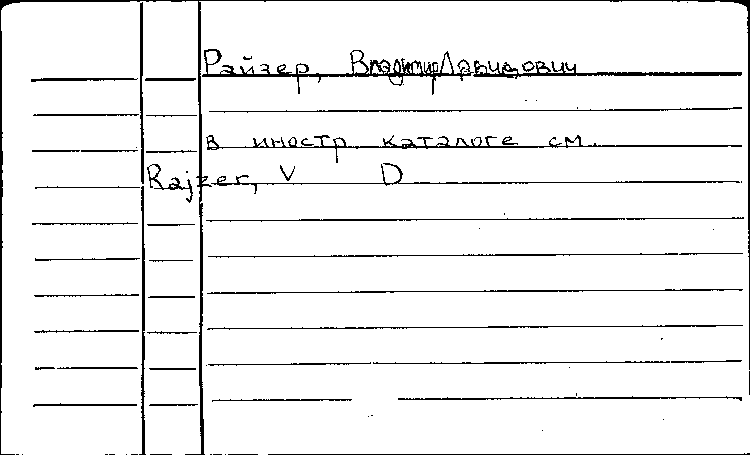 Райзер, Владимир Давидович
в иностр каталоге см.
Rajzer, V D